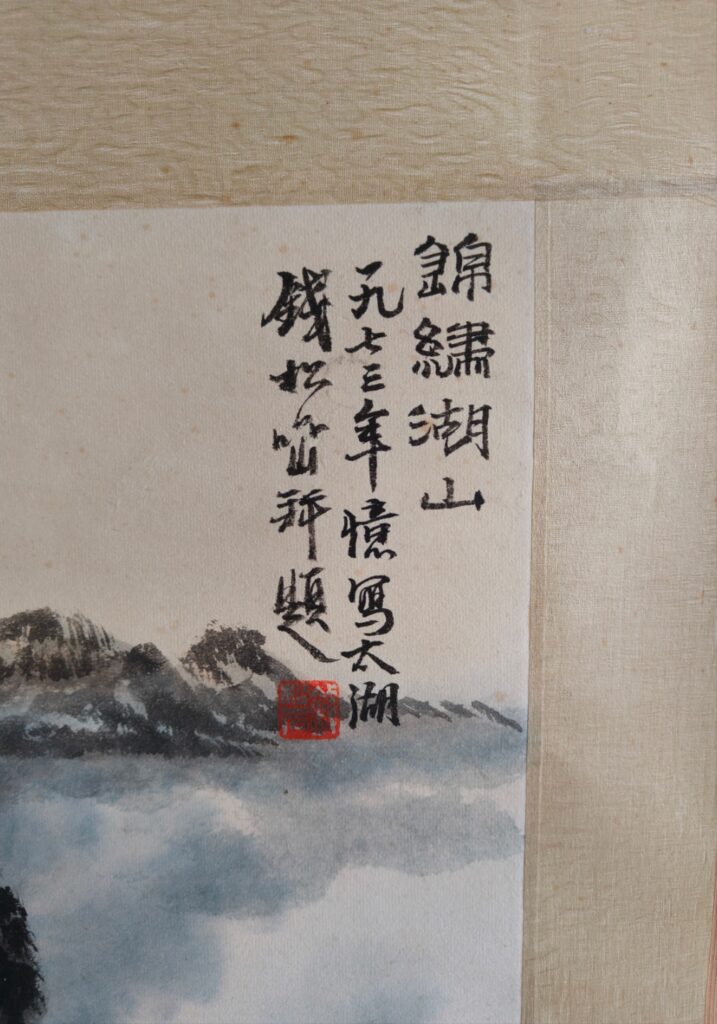 錦繡湖山
一九七三年憶寫太湖
錢松嵒幷題